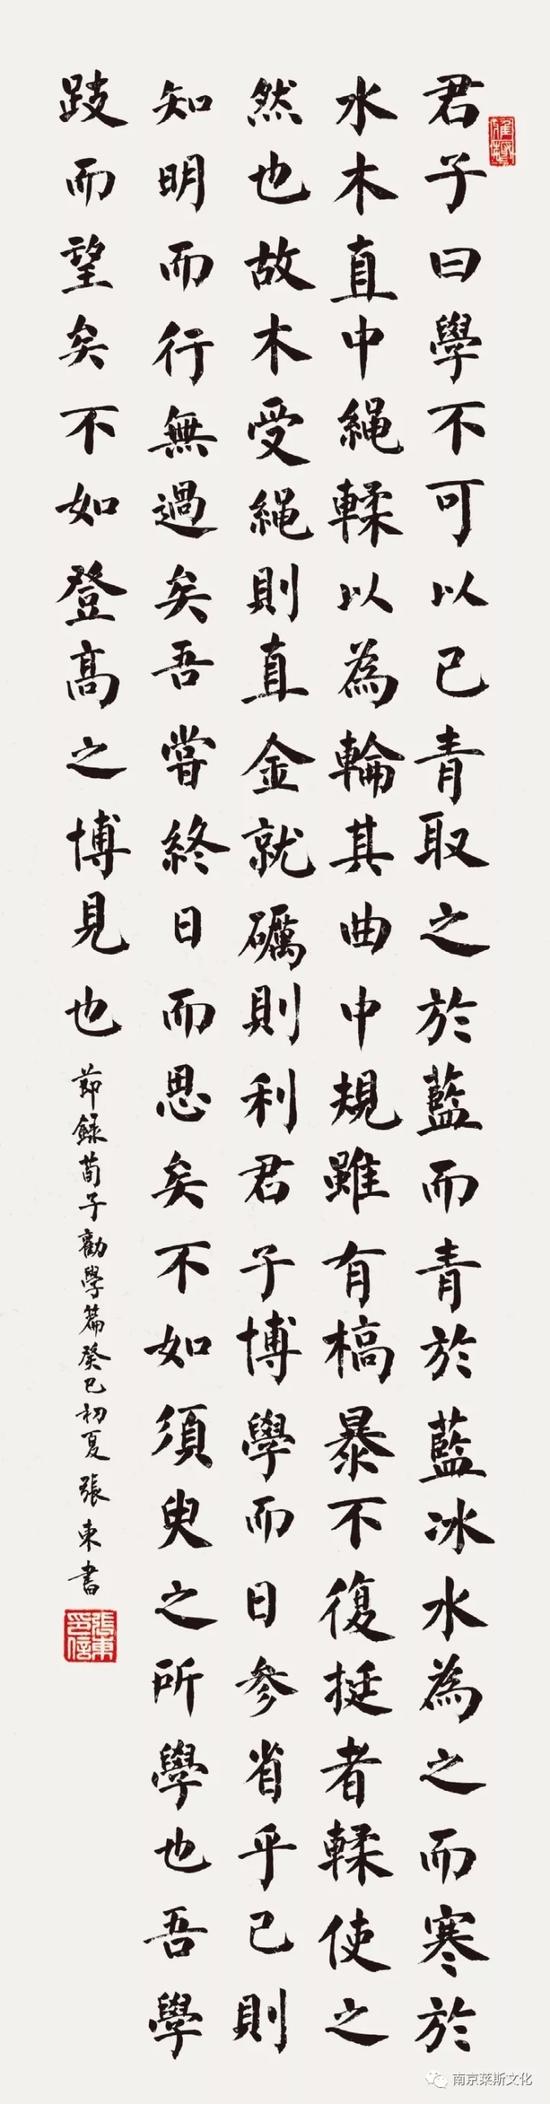 君子曰學不可以已青取之於藍而青於藍冰水為之而寒於
水木直中繩輮以為輪其曲中規雖有槁暴不復挺者輮使之
然也故木受繩則直金就礪則利君子博學而日參省乎己則
知明而行無過矣吾嘗終日而思矣不如須臾之所學也吾學
跂而望矣不如登高之博見也
節錄荀子勸學篇癸巳初夏張東書
張東印信
南京莱斯文化